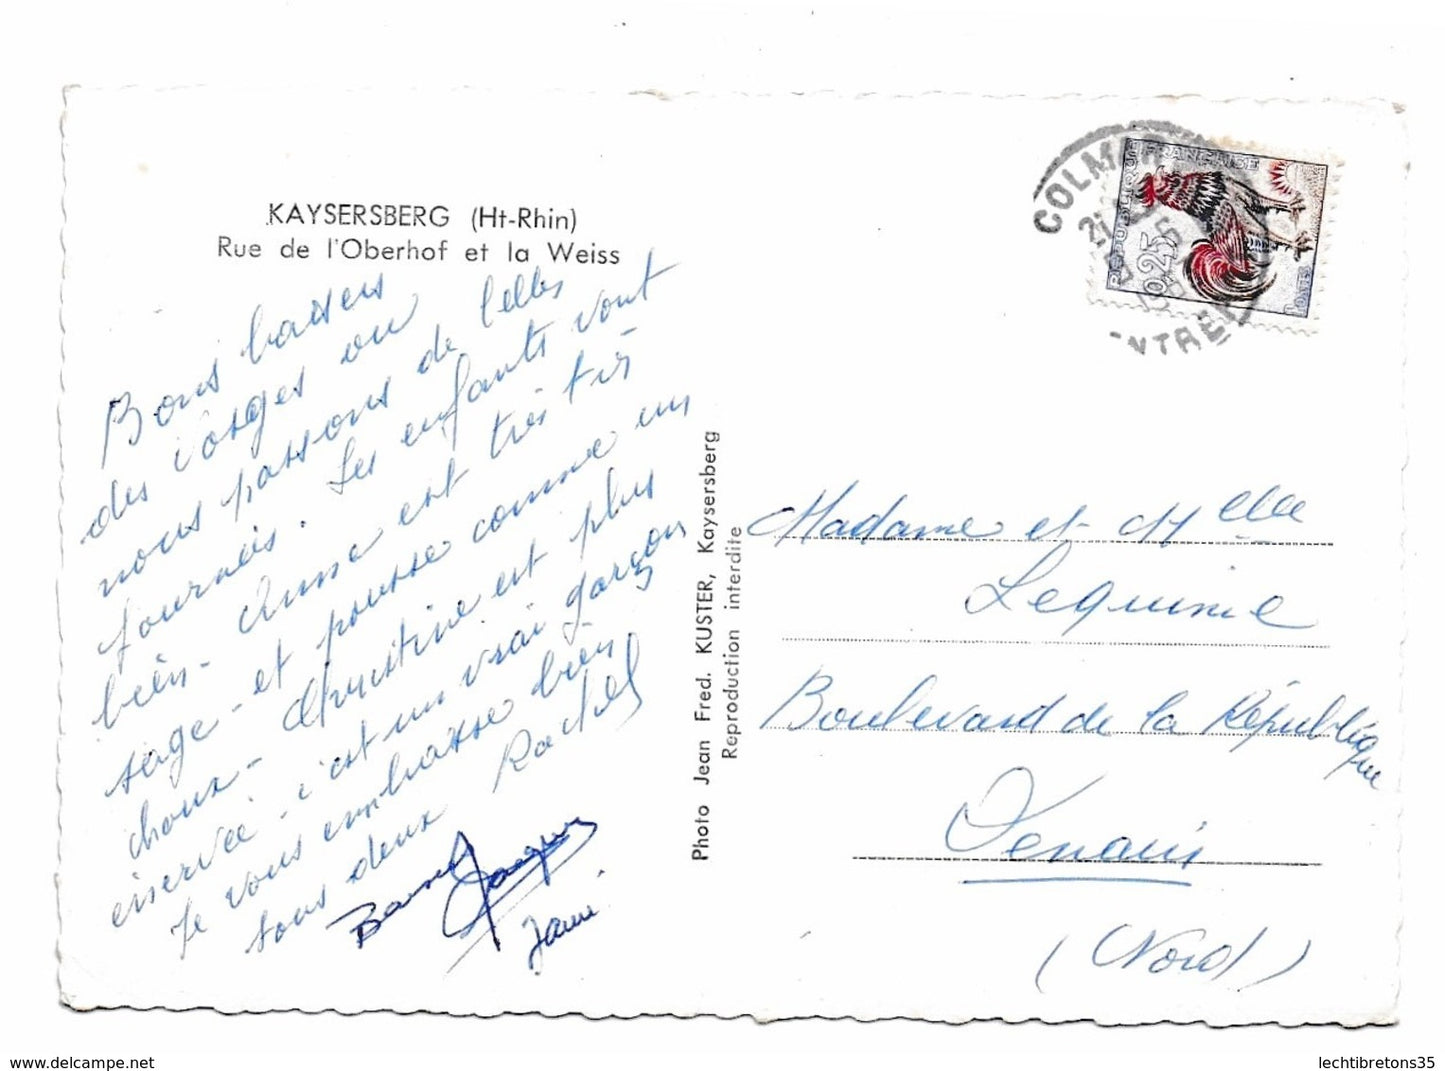 KAYSERSBERG (Ht-Rhin)
Rue de l'Oberhof et la Weiss
Bons baisers
des Vosges ou
nous passons de belles
journées. Les enfants vont
bien - Anne est très très
sage - et pousse comme un
choux - Christine est plus
énervée - c'est un vrai garçon
Je vous embrasse bien
tous deux Rachel
Jacques
Photo Jean Fred. KUSTER, Kaysersberg
Reproduction interdite
REPUBLIQUE FRANÇAISE
0,25
COLMAR
Madame et Melle
Lequime
Boulevard de la République
Denain
(Nord)
lechtibretons35